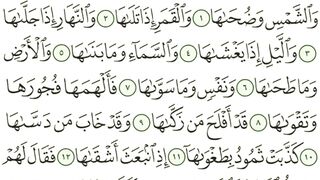 وَالشَّمْسِ وَضُحَىٰهَا ١ وَالْقَمَرِ إِذَا تَلَىٰهَا ٢ وَالنَّهَارِ إِذَا جَلَّىٰهَا
٣ وَالَّيْلِ إِذَا يَغْشَىٰهَا ٤ وَالسَّمَآءِ وَمَا بَنَىٰهَا ٥ وَالْأَرْضِ
وَمَا طَحَىٰهَا ٦ وَنَفْسٍ وَمَا سَوَّىٰهَا ٧ فَأَلْهَمَهَا فُجُورَهَا
وَتَقْوَىٰهَا ٨ قَدْ أَفْلَحَ مَن زَكَّىٰهَا ٩ وَقَدْ خَابَ مَن دَسَّىٰهَا
١٠ كَذَّبَتْ ثَمُودُ بِطَغْوَىٰهَا ١١ إِذِ انۢبَعَثَ أَشْقَىٰهَا ١٢ فَقَالَ لَهُمْ